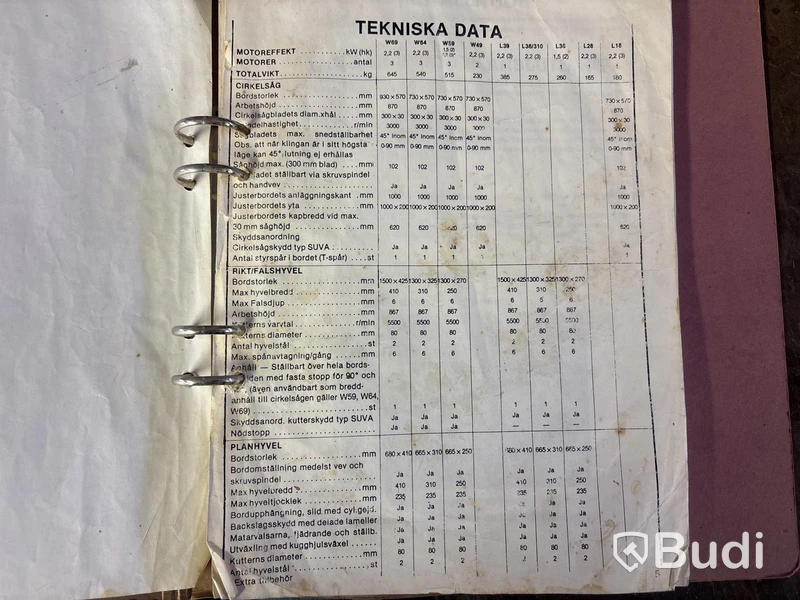 TEKNISKA DATA
W69 W64 W59 W49 L39 L38/310 L36 L28 L18
MOTOREFFEKT kW (hk) 2,2 (3) 2,2 (3) 1,5 (2) 2,2 (3) 2,2 (3) 2,2 (3) 1,5 (2) 2,2 (3) 2,2 (3)
MOTORER antal 3 3 3 2 1 1 1 1
TOTALVIKT kg 645 540 515 230 385 275 260 165 180
CIRKELSÅG
Bordstorlek mm 930 x 570 730 x 570 730 x 570 730 x 570 730 x 570
Arbetshöjd mm 870 870 870 870 870
Cirkelsågbladets diam.xhål mm 300 x 30 300 x 30 300 x 30 300 x 30 300 x 30
delhastighet r/min 3000 3000 3000 3000 3000
bladets max. snedställbarhet 45° inom 45° inom 45° inom 45° inom 45° inom
Obs. att när klingan är i sitt högsta 0-90 mm 0-90 mm 0-90 mm 0-90 mm 0-90 mm
läge kan 45° lutning ej erhållas
Såghöjd max. (300 mm blad) mm 102 102 102 102 102
adet ställbart via skruvspindel
och handvev Ja Ja Ja Ja Ja
Justerbordets anläggningskant mm 1000 1000 1000 1000 1000
Justerbordets yta mm 1000 x 200 1000 x 200 1000 x 200 1000 x 200 1000 x 200
Justerbordets kapbredd vid max.
30 mm såghöjd mm 620 620 620 620 620
Skyddsanordning
Cirkelsågskydd typ SUVA Ja Ja Ja Ja Ja
Antal styrspår i bordet (T-spår) st 1 1 1 1 1
RIKT/FALSHYVEL
Bordstorlek mm 1500 x 425 1300 x 325 1300 x 270 1500 x 425 1300 x 325 1300 x 270
Max hyvelbredd mm 410 310 250 410 310 250
Max Falsdjup mm 6 6 6 6 6 6
Arbetshöjd mm 867 867 867 867 867 867
Kutterns varvtal r/min 5500 5500 5500 5500 5500 5500
Kutterns diameter mm 80 80 80 80 80 80
Antal hyvelstål st 2 2 2 2 2 2
Max. spånavtagning/gång mm 6 6 6 6 6 6
Anhåll — Ställbart över hela bords-
den med fasta stopp för 90° och
(även användbart som bredd-
anhåll till cirkelsågen gäller W59, W64,
W69) st 1 1 1 1 1 1
Skyddsanord. kutterskydd typ SUVA Ja Ja Ja Ja Ja Ja
Nödstopp Ja Ja Ja — — —
PLANHYVEL
Bordstorlek mm 680 x 410 665 x 310 665 x 250 680 x 410 665 x 310 665 x 250
Bordomställning medelst vev och
skruvspindel Ja Ja Ja Ja Ja Ja
Max hyvelbredd mm 410 310 250 410 310 250
Max hyveltjocklek mm 235 235 235 235 235 235
Bordupphängning, slid med cyl.gejd. Ja Ja Ja Ja Ja
Backslagsskydd med delade lameller Ja Ja Ja Ja Ja Ja
Matarvalsarna, fjädrande och ställb. Ja Ja Ja Ja Ja Ja
Utväxling med kugghjulsväxel Ja Ja Ja Ja Ja Ja
Kutterns diameter mm 80 80 80 80 80 80
Antal hyvelstål st 2 2 2 2 2 2
Extra tillbehör
5
Budi